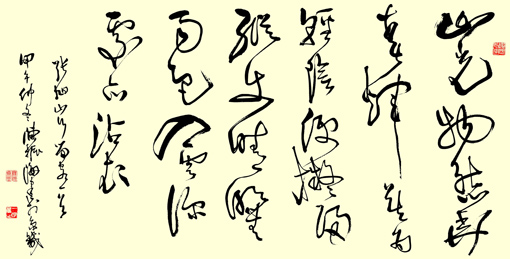 山光物態弄
春輝莫為
輕陰便擬歸
縱使晴明無
雨色入雲深
處亦沾衣
張旭山行留客一首
甲午仲冬